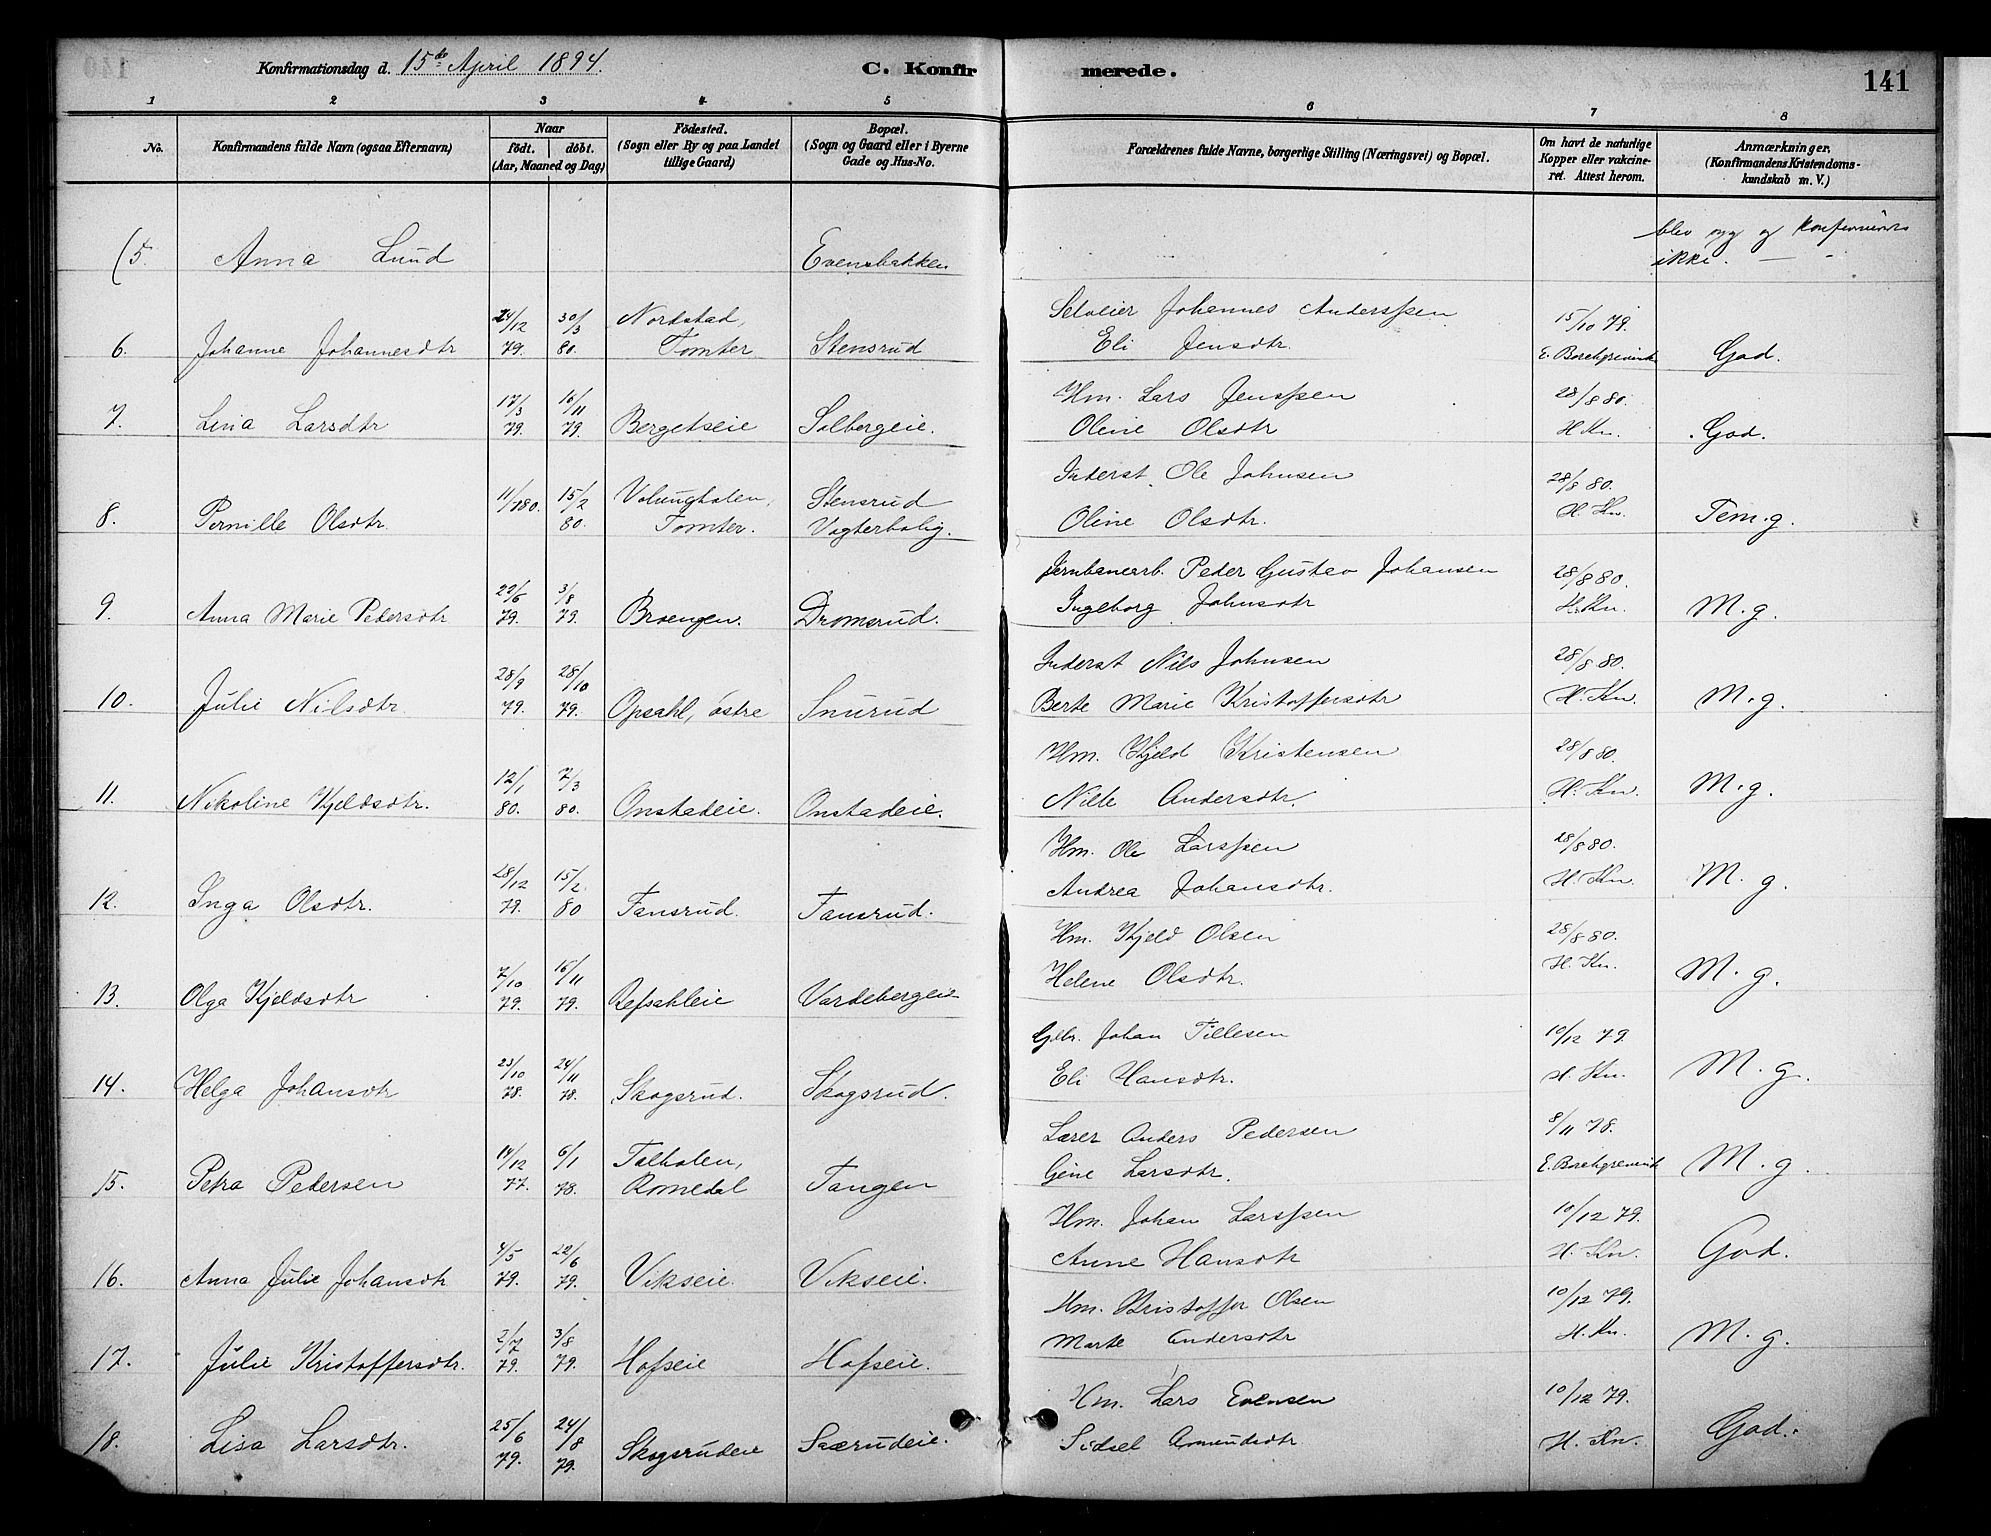 Konfirmationsdag d. 15de April 1894.
C. Konfirmerede.
141
1 2 3 4 5 6 7 8
No.
Konfirmandens fulde Navn (ogsaa Efternavn)
Naar
født. døbt.
(Aar, Maaned og Dag)
Fødested.
(Sogn eller By og paa Landet
tillige Gaard)
Bopæl.
(Sogn og Gaard eller i Byerne
Gade og Hus-No.
Forældrenes fulde Navne, borgerlige Stilling (Næringsvei) og Bopæl.
Om havt de naturlige
Kopper eller vakcine-
ret. Attest herom.
Anmærkninger.
(Konfirmandens Kristendoms-
kundskab m. V.)
(5. Anna Lund Evensbakken blev syg og konfirmeres
ikke. — -
24/12 30/3 Nordstad, Selveier Johannes Anderssen 15/10 79.
6. Johanne Johannesdtr 79. 80. Tomter. Stensrud Eli Jensdtr. E. Borchgrevink God.
17/3 16/11 Hm. Lars Jenssen 28/8 80.
7. Lina Larsdtr 79. 79. Bergetseie Solbergeie. Oline Olsdtr H. Kn. God.
11/1 80. 15/2 Stensrud Inderst. Ole Johnsen 28/8 80.
8. Pernille Olsdtr. 80. Tomter. Vogterbolig. Oline Olsdtr. H. Kn. Tem.g.
29/6 3/8 Jernbanearb. Peder Gustav Johansen 28/8 80.
9. Anna Marie Pedersdtr 79. 79. Broengen. Dromsrud. Ingeborg Johnsdtr H. Kn. M.g.
28/9 28/10 Inderst Nils Johnsen 28/8 80.
10. Julie Nilsdtr 79. 79. Opsahl, østre Snurud Berte Marie Kristoffersdtr H. Kn. M.g.
12/1 7/3 Hm. Kjeld Kristensen 28/8 80.
11. Nikoline Kjeldsdtr. 80. 80. Onstadeie. Onstadeie. Andersdtr. H. Kn. M.g.
28/12 15/2 Hm. Ole Larssen 28/8 80.
12. Inga Olsdtr. 79. 80 Fansrud. Fansrud. Andrea Johansdtr. H. Kn. M.g.
7/10 16/11 Hm. Kjeld Olsen 28/8 80.
13. Olga Kjeldsdtr 79. 79. Refsahleie Vardebergeie Helene Olsdtr. H. Kn. M.g.
23/10 24/11 Gdbr. Johan Tillesen 10/12 79.
14. Helga Johansdtr 78. 78. Skogsrud. Skogsrud. Eli Hansdtr. H. Kn. M.g.
14/12 6/1 Lærer Anders Pedersen 8/11 78.
15. Petra Pedersen 77. 78. Romedal Tangen Gine Larsdtr. E. Borchgrevink M.g.
4/5 22/6 Hm. Johan Larssen 10/12 79.
16. Anna Julie Johansdtr 79. 79. Vikseie. Vikseie. Anne Hansdtr H. Kn. God.
2/7 3/8 Hm. Kristoffer Olsen 10/12 79.
17. Julie Kristoffersdtr. 79. 79. Hofseie Hofseie. Marte Andersdtr H. Kn. M.g.
25/6 24/8 Hm. Lars Evensen 10/12 79.
18. Lisa Larsdtr. 79. 79. Skogsrudeie Saxrudeie. Sidsel Amundsdtr H. Kn. God.